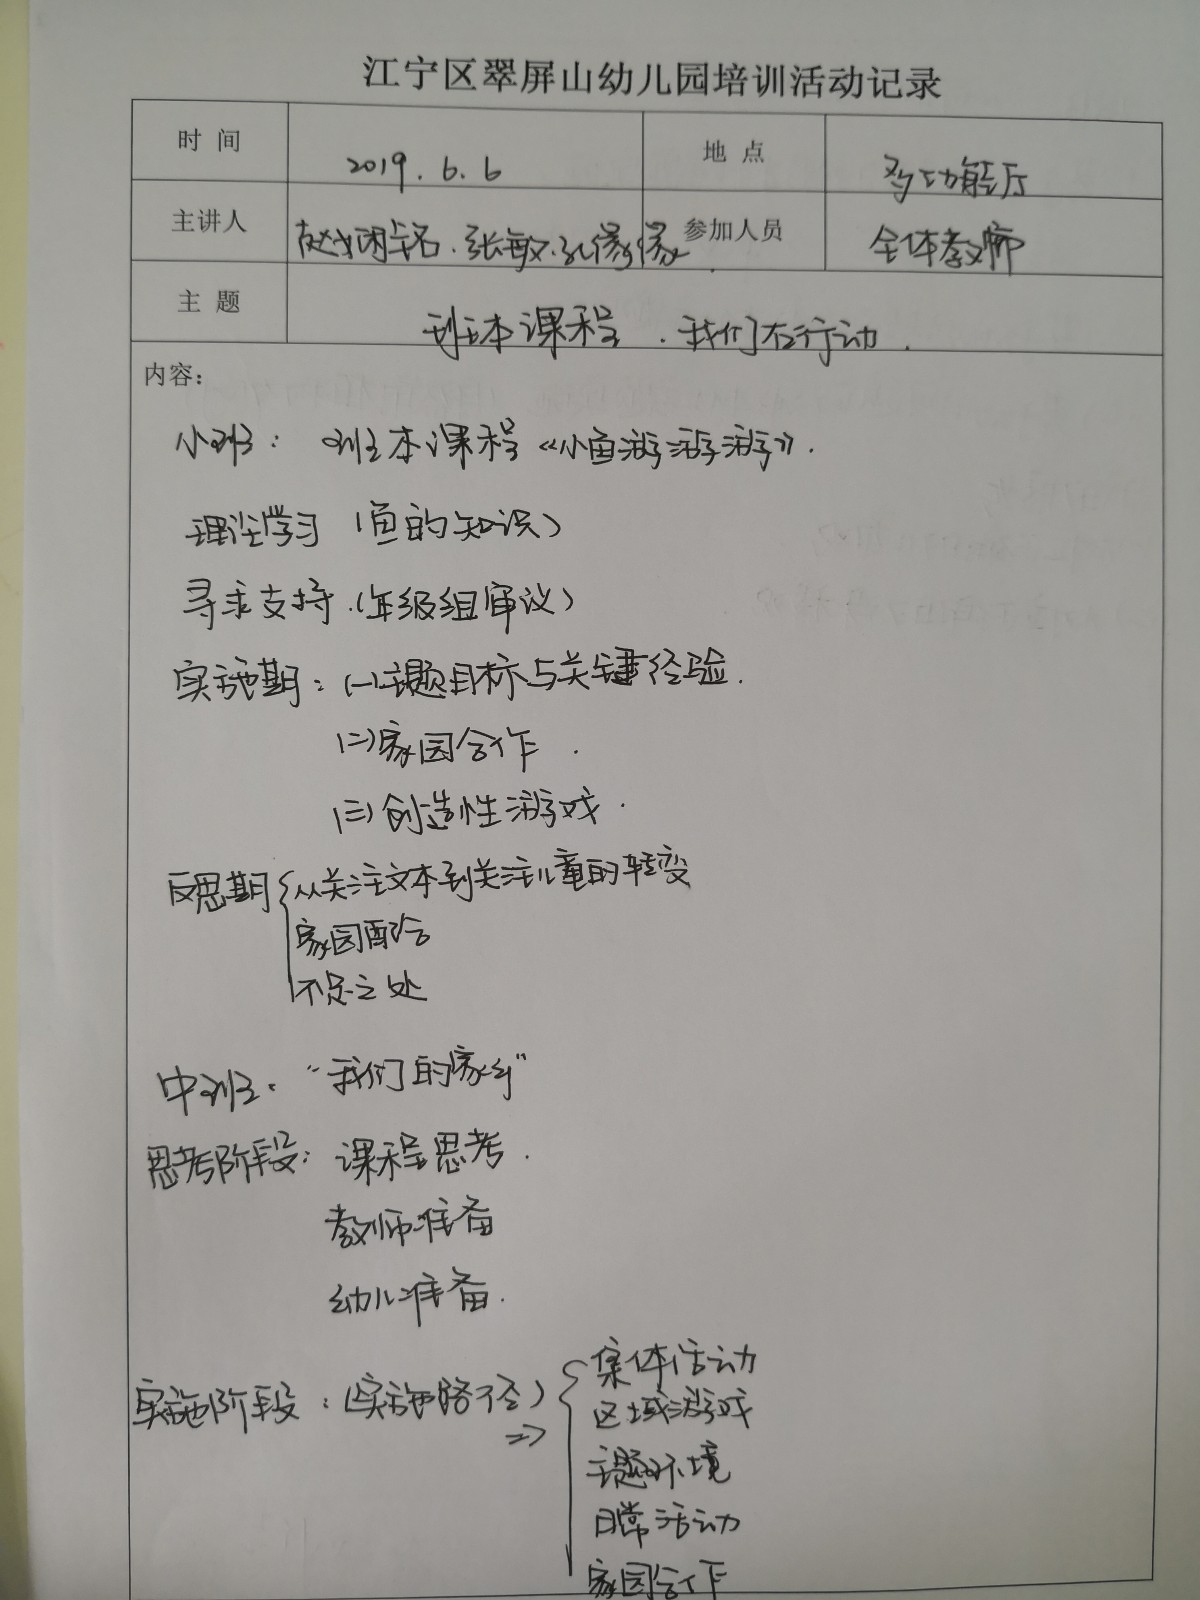 江宁区翠屏山幼儿园培训活动记录
时间 2019.6.6 地点 多功能厅
主讲人 张敏. 参加人员 全体教师
主题 班本课程.我们在行动.
内容：
小班：班本课程《小鱼游游游》.
理论学习（鱼的知识）
寻求支持.（年级组审议）
实施期：(一)主题目标与关键经验.
(二)家园合作.
(三)创造性游戏.
反思期{从关注文本到关注儿童的转变
家园配合
不足之处
中班："我们的家乡"
思考阶段：课程思考.
教师准备
幼儿准备.
实施阶段：(实施路径)⇒{集体活动
区域游戏
主题环境
日常活动
家园合作